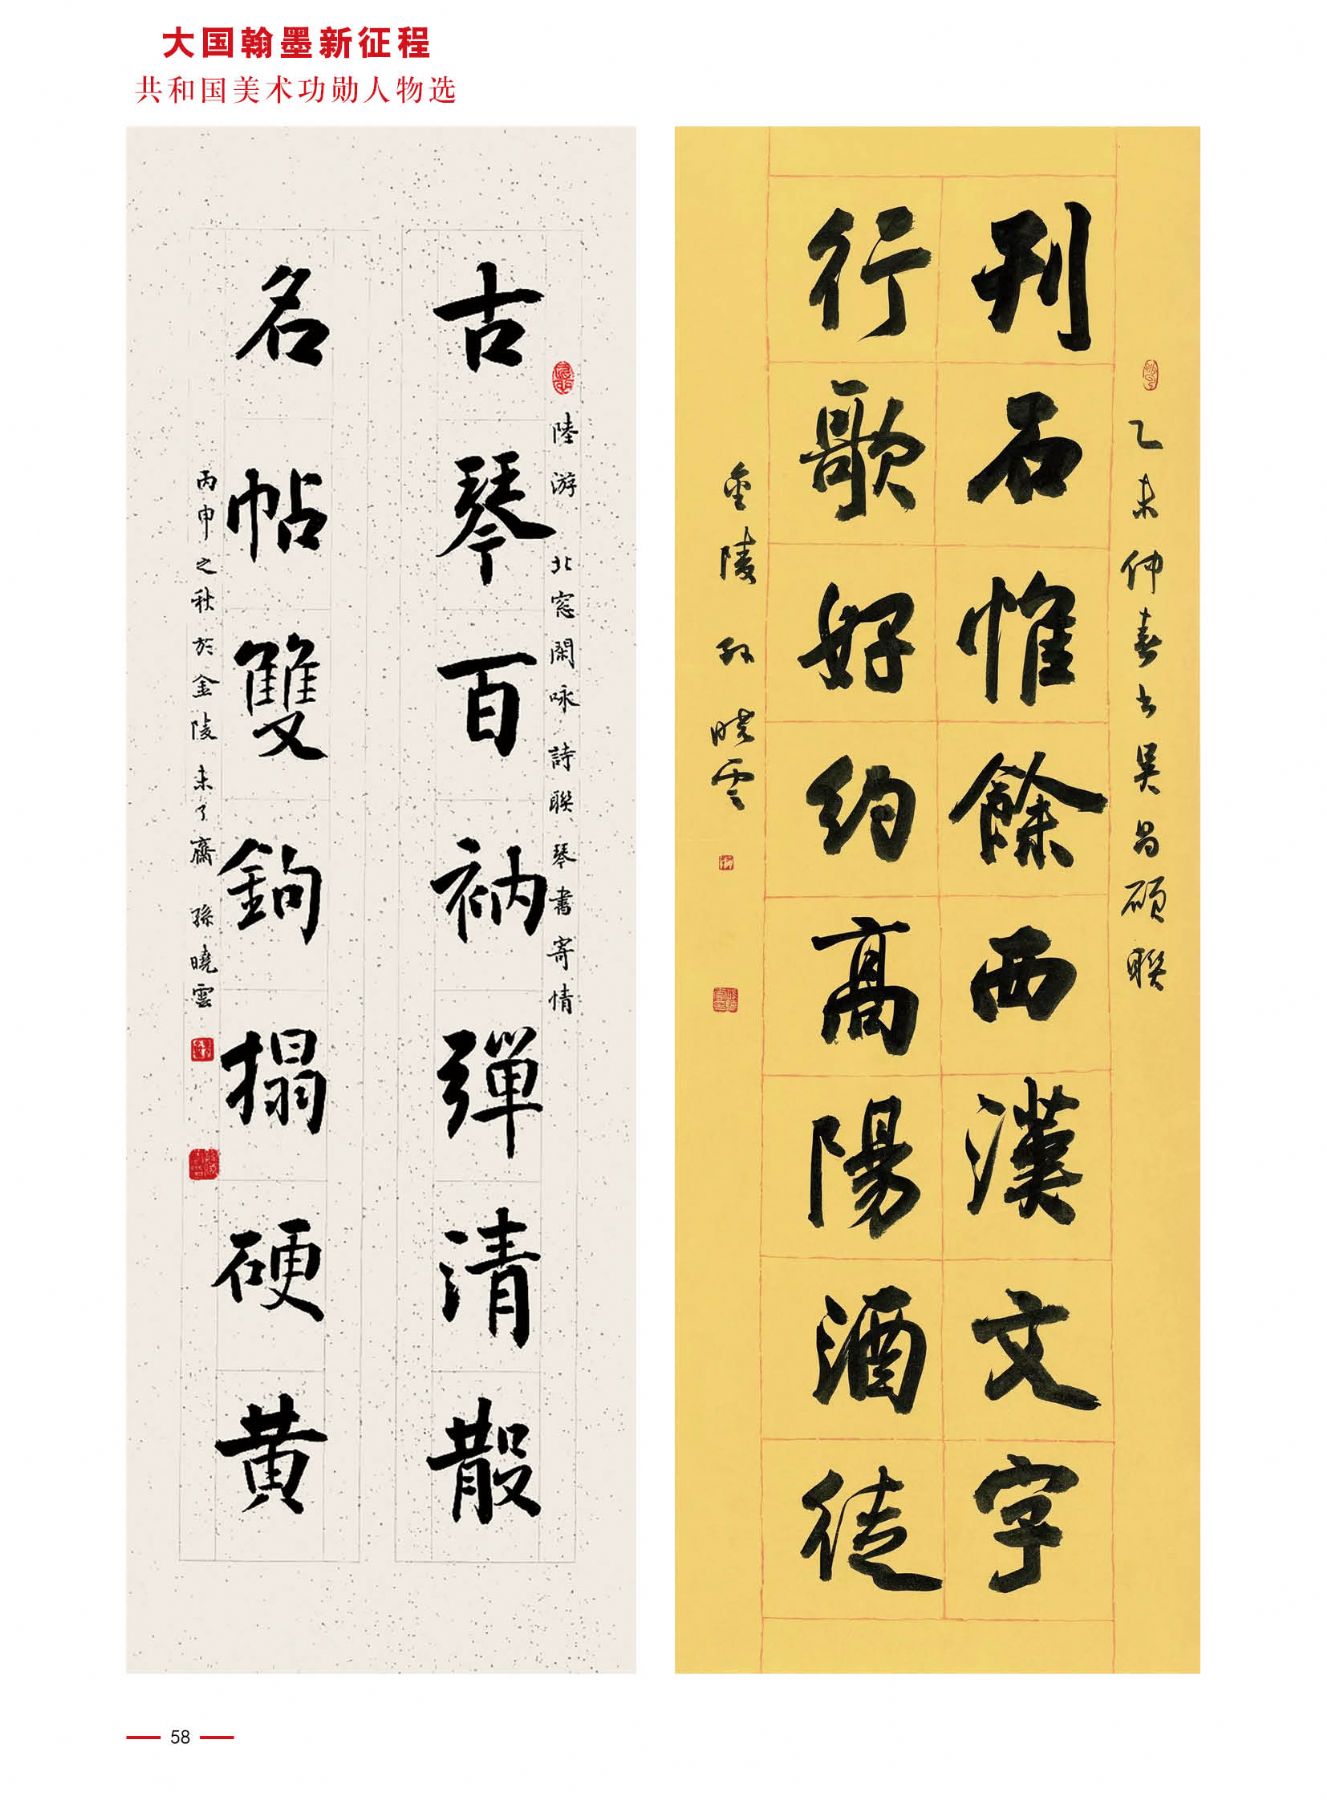 大国翰墨新征程
共和国美术功勋人物选
古琴百衲弹清散
陸游 北窓閑咏 詩聯琴書寄情
名帖雙鉤搨硬黄
丙申之秋於金陵未了齋 孫曉雲
乙未仲春书吴昌硕联
刊石惟餘西漢文字
行歌好约高陽酒徒
金陵 孙晓云
58